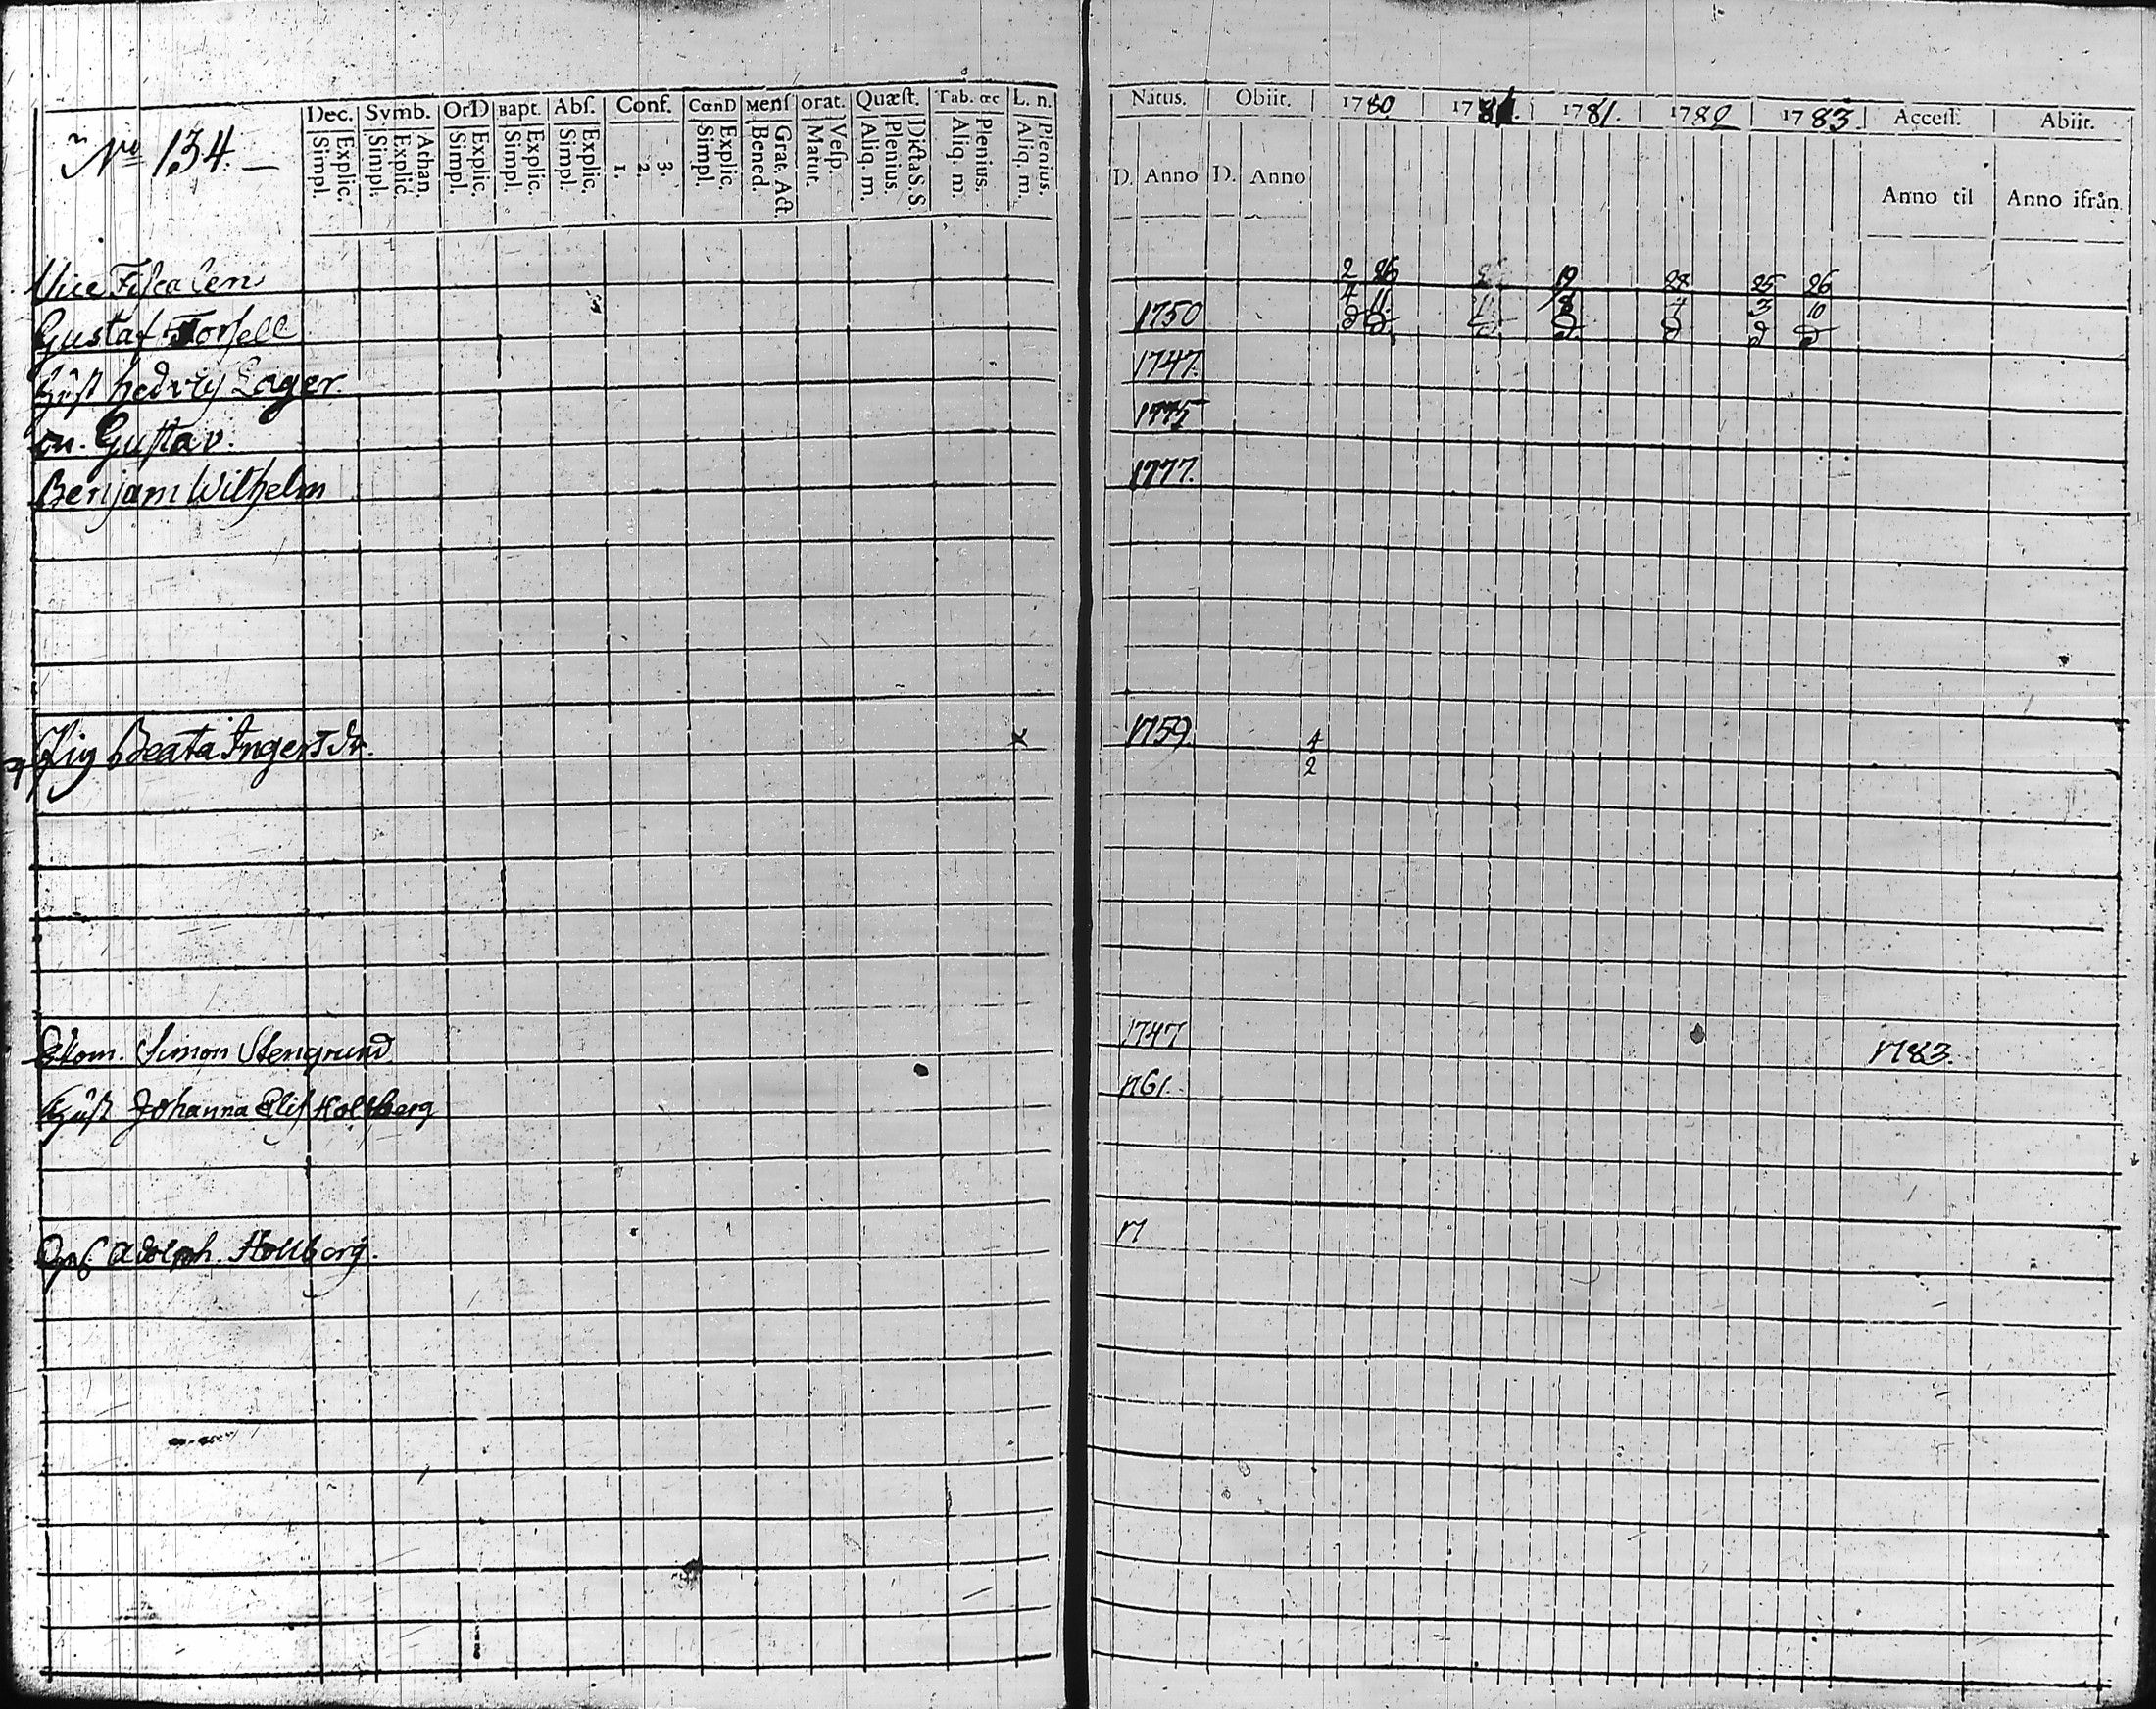 Nro 134.
Dec. Symb. OrD Bapt. Abſ. Conf. CœnD Menſ orat. Quæſt. Tab. œc L. n.
Simpl. Explic. Simpl. Explic. Athan. Simpl. Explic. Simpl. Explic. Simpl. Explic. 1. 2. 3. Simpl. Explic. Bened. Grat. Act. Matut. Veſp. Aliq. m. Plenius. Dicta S. S. Aliq. m. Plenius. Aliq. m. Plenius.
Natus. Obiit. 1780. 1781. 1782 1783. Acceſſ. Abiit.
D. Anno D. Anno Anno til Anno ifrån
Vice Fiſcalen 2 26 19 28 25 26
4 11 8 4 3 10
Gustaf Forſell 1750
Huſt hedvig Lager. 1747.
Gustav. 1775
Benjam Wilhelm 1777.
Pig Beata Ingersdr. x 1759. 4
2
Simon Stengrund 1747 1783.
Huſt Johanna Eliſ Hollberg 1761.
Adolph. Hollberg. 17